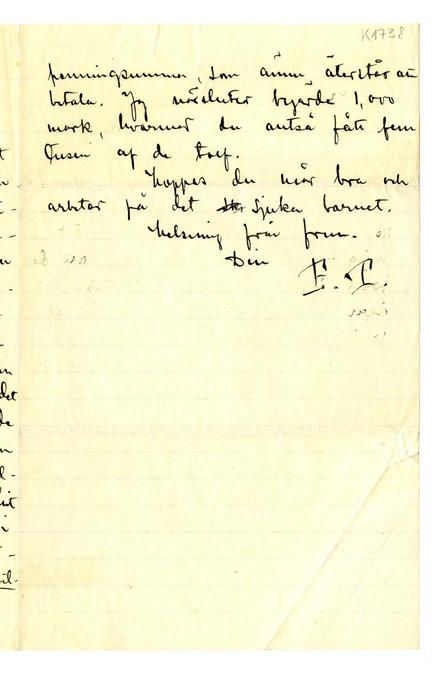 K1738
penningsumma, som ännu återstår att
betala. Jg närsluter begärda 1,000
mark, hvarmed du altså fått fem
tusen af de tolf.
Hoppes du mår bra och
arbetar på det sjuka barnet.
Helsning från frun.
Din
E. T.
det
de
i